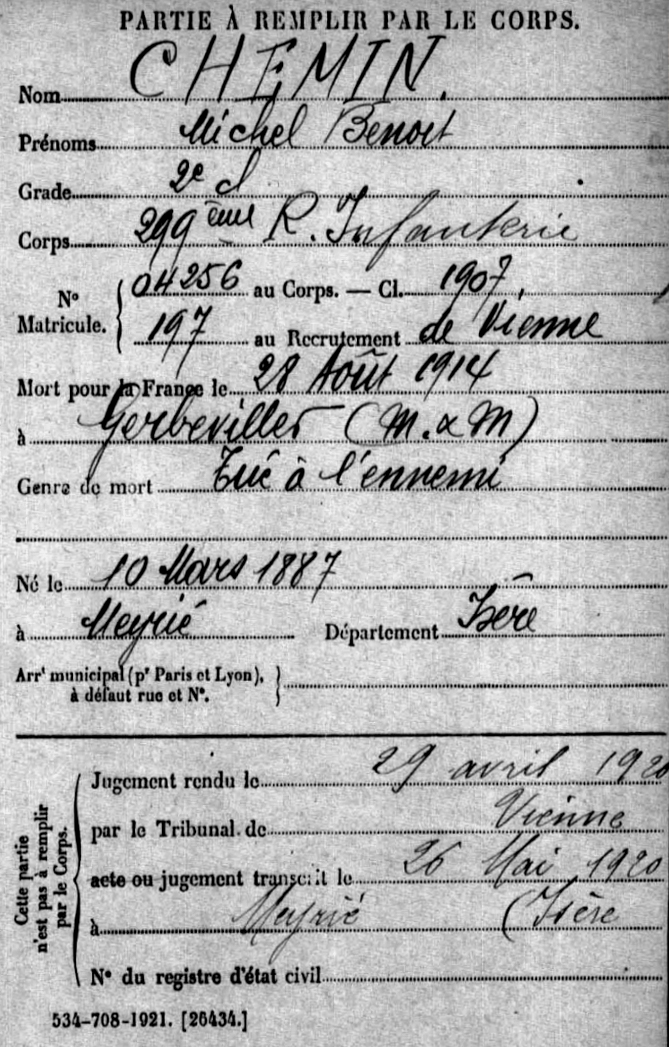 PARTIE À REMPLIR PAR LE CORPS.
Nom CHEMIN.
Prénoms Michel Benoit
Grade 2e cl
Corps 299ème R. Infanterie
N° Matricule. { 04256 au Corps. — Cl. 1907.
197 au Recrutement de Vienne
Mort pour la France le 28 Août 1914
à Gerbeviller (M. & M)
Genre de mort Tué à l'ennemi
Né le 10 Mars 1887
à Meyrié Département Isère
Arrt municipal (pr Paris et Lyon), }
à défaut rue et N°.
Cette partie n'est pas à remplir par le Corps.
Jugement rendu le 29 avril 1920
par le Tribunal de Vienne
acte ou jugement transcrit le 26 Mai 1920
à Meyrié (Isère
N° du registre d'état civil
534-708-1921. [26434.]